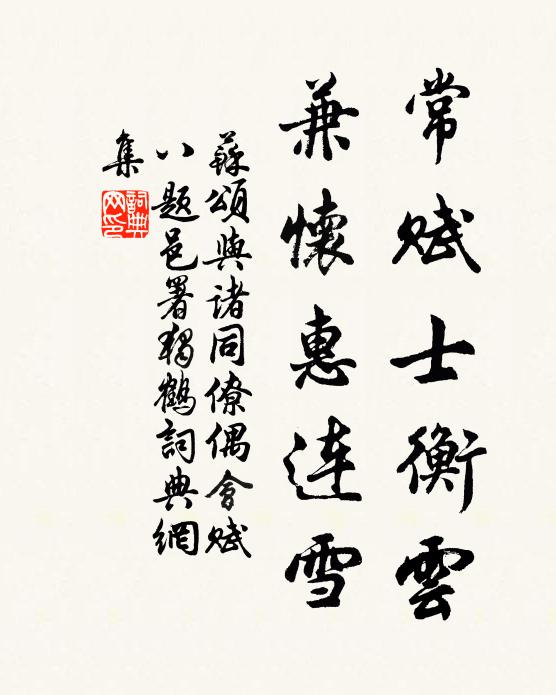 常賦士衡雲
兼懷惠連雪
蘇頌與諸同僚偶會賦
八題邑署獨鶴詞典網
集
詞典
网印